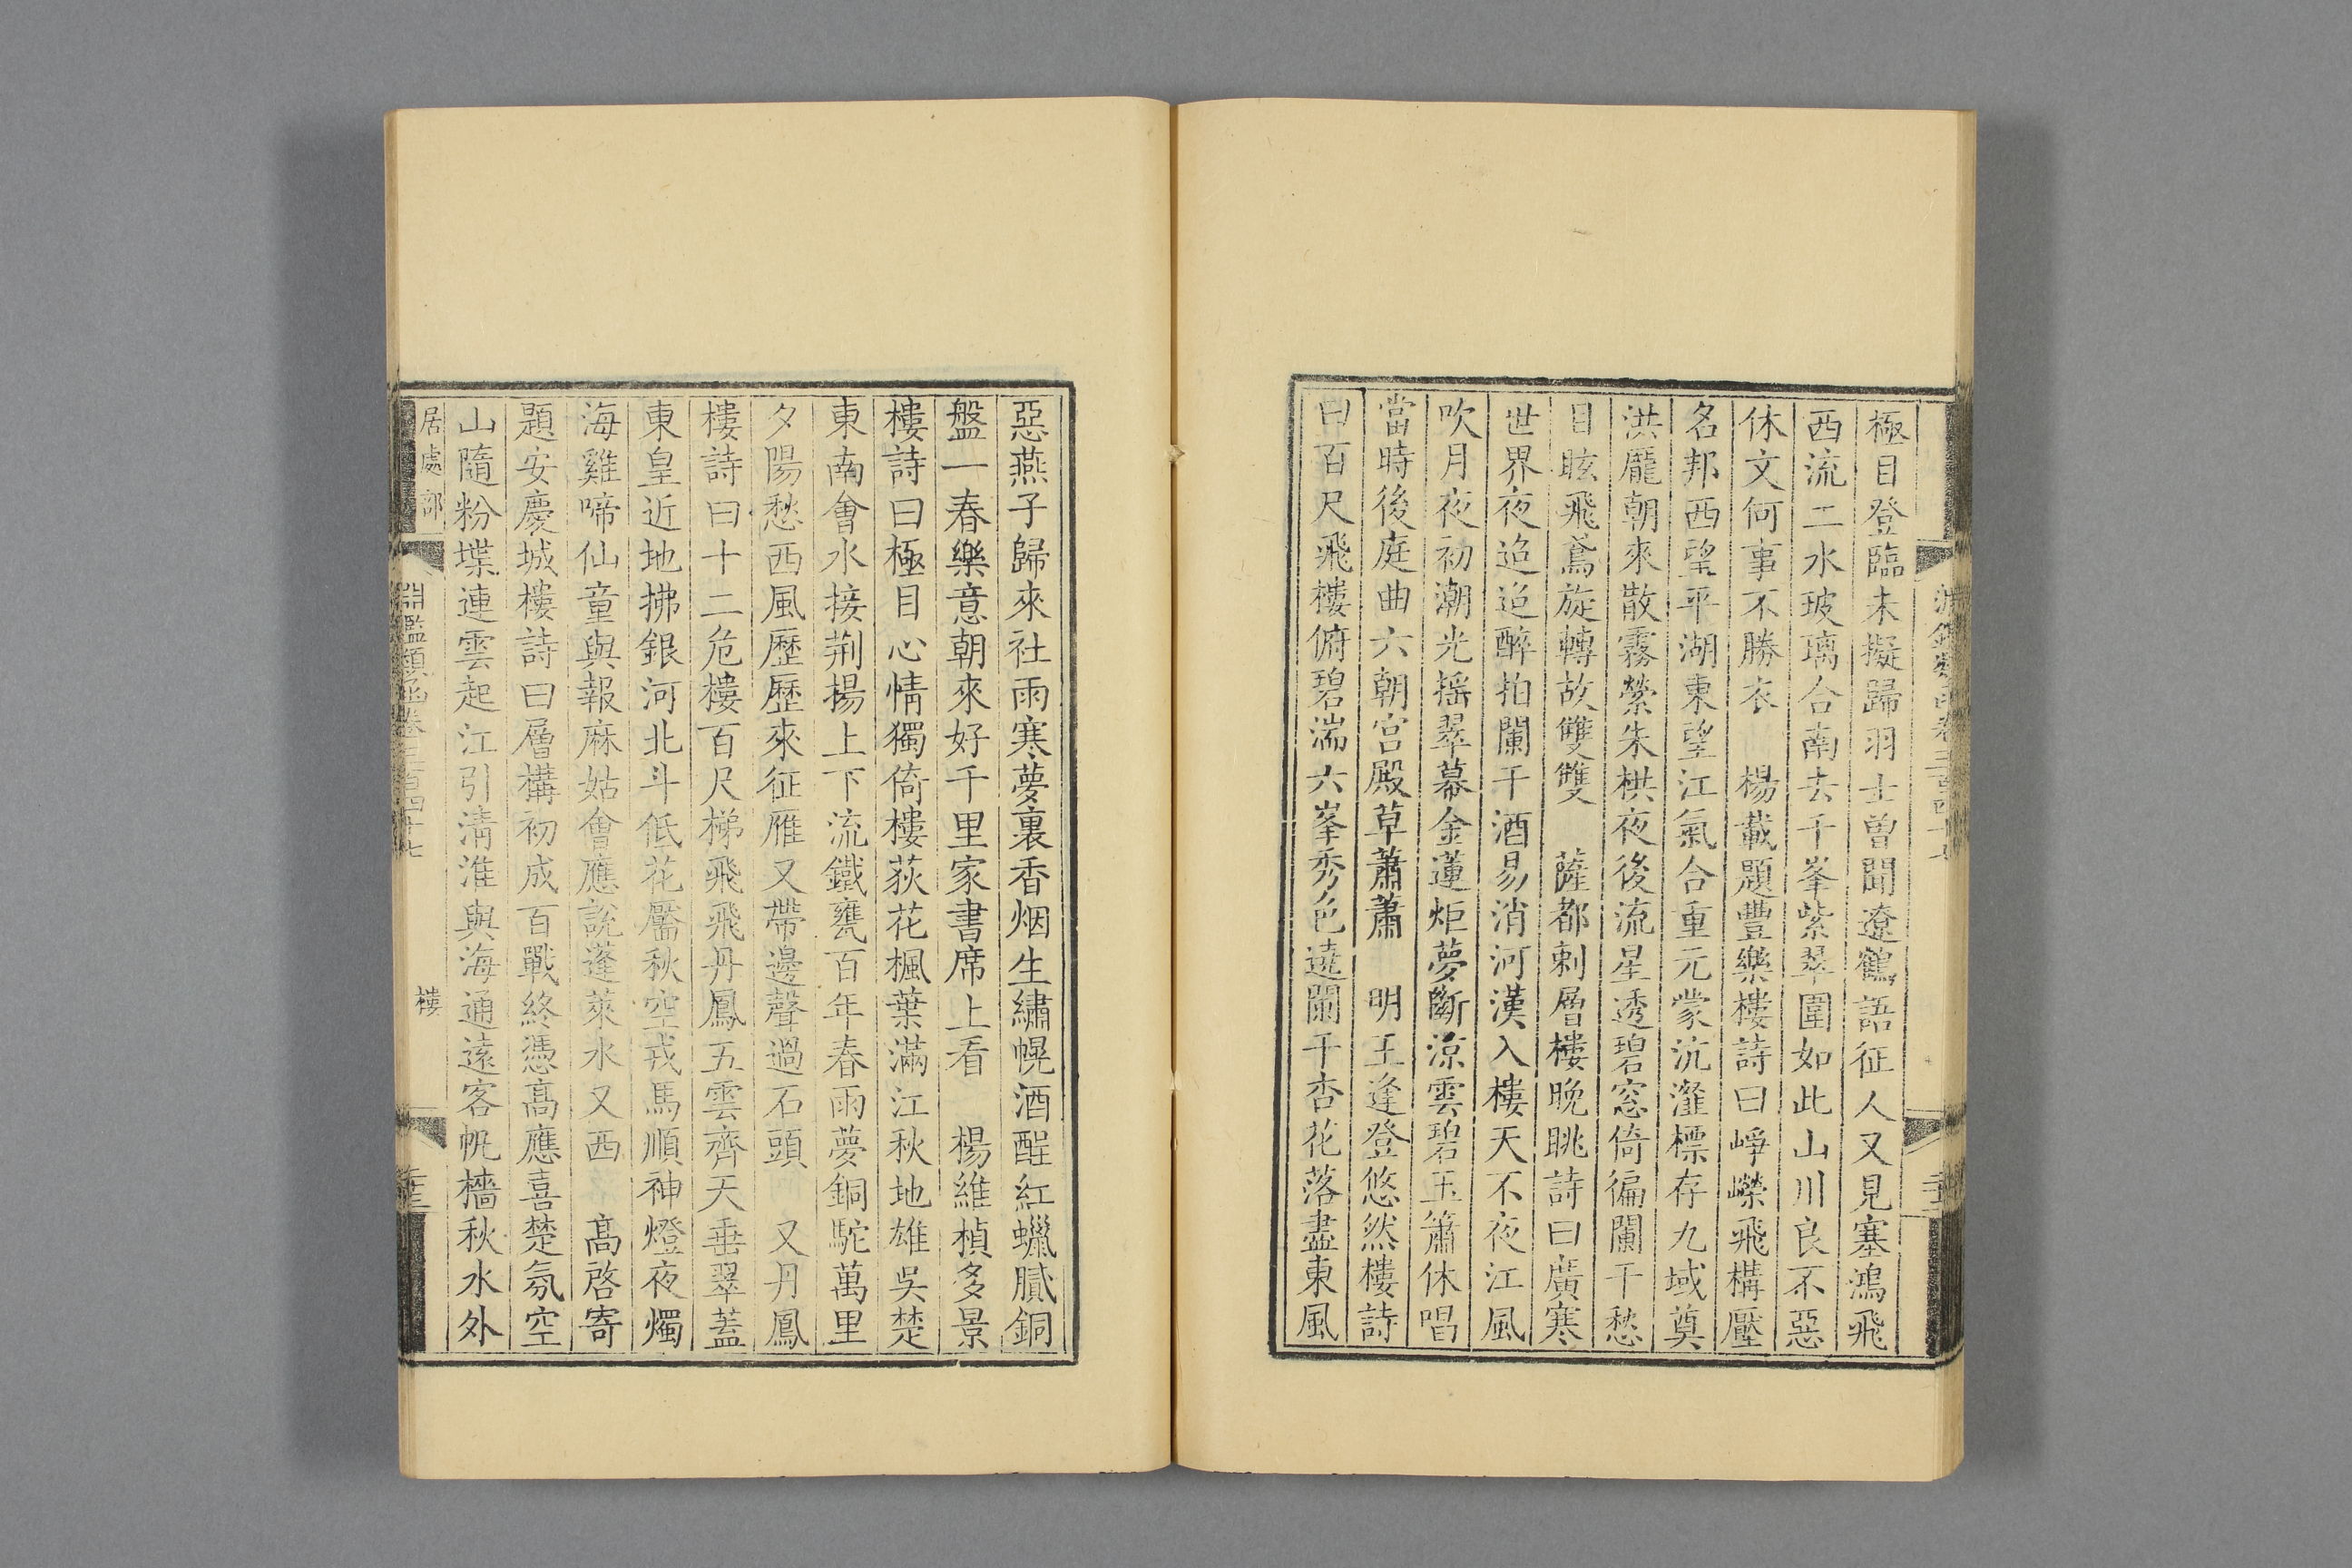 極目登臨未擬歸羽士曾聞遼鶴語征人又見塞鴻飛
西流二水玻璃合南去千峯紫翠圍如此山川良不惡
休文何事不勝衣　楊載題豐樂樓詩曰崢嶸飛構壓
名邦西望平湖東望江氣合重元蒙沆瀣標存九域奠
洪厖朝來散霧縈朱栱夜後流星透碧窓倚徧闌干愁
目眩飛鳶旋轉故雙雙　薩都剌層樓晚眺詩曰廣寒
世界夜迢迢醉拍闌干酒易消河漢入樓天不夜江風
吹月夜初潮光搖翠幕金蓮炬夢斷涼雲碧玉簫休唱
當時後庭曲六朝宮殿草蕭蕭　明王逢登悠然樓詩
曰百尺飛樓俯碧湍六峯秀色遶闌干杏花落盡東風
惡燕子歸來社雨寒夢裏香烟生繡幌酒酲紅蠟膩銅
盤一春樂意朝來好千里家書席上看　楊維楨多景
樓詩曰極目心情獨倚樓荻花楓葉滿江秋地雄吳楚
東南會水接荆揚上下流鐵甕百年春雨夢銅駝萬里
夕陽愁西風歷歷來征雁又帶邊聲過石頭　又丹鳳
樓詩曰十二危樓百尺梯飛飛丹鳳五雲齊天垂翠蓋
東皇近地拂銀河北斗低花靨秋空戎馬順神燈夜燭
海雞啼仙童與報麻姑會應說蓬萊水又西　高啓寄
題安慶城樓詩曰層構初成百戰終憑高應喜楚氛空
山隨粉堞連雲起江引清淮與海通遠客帆檣秋水外
居處部
淵鑑類函卷三百四十七
樓